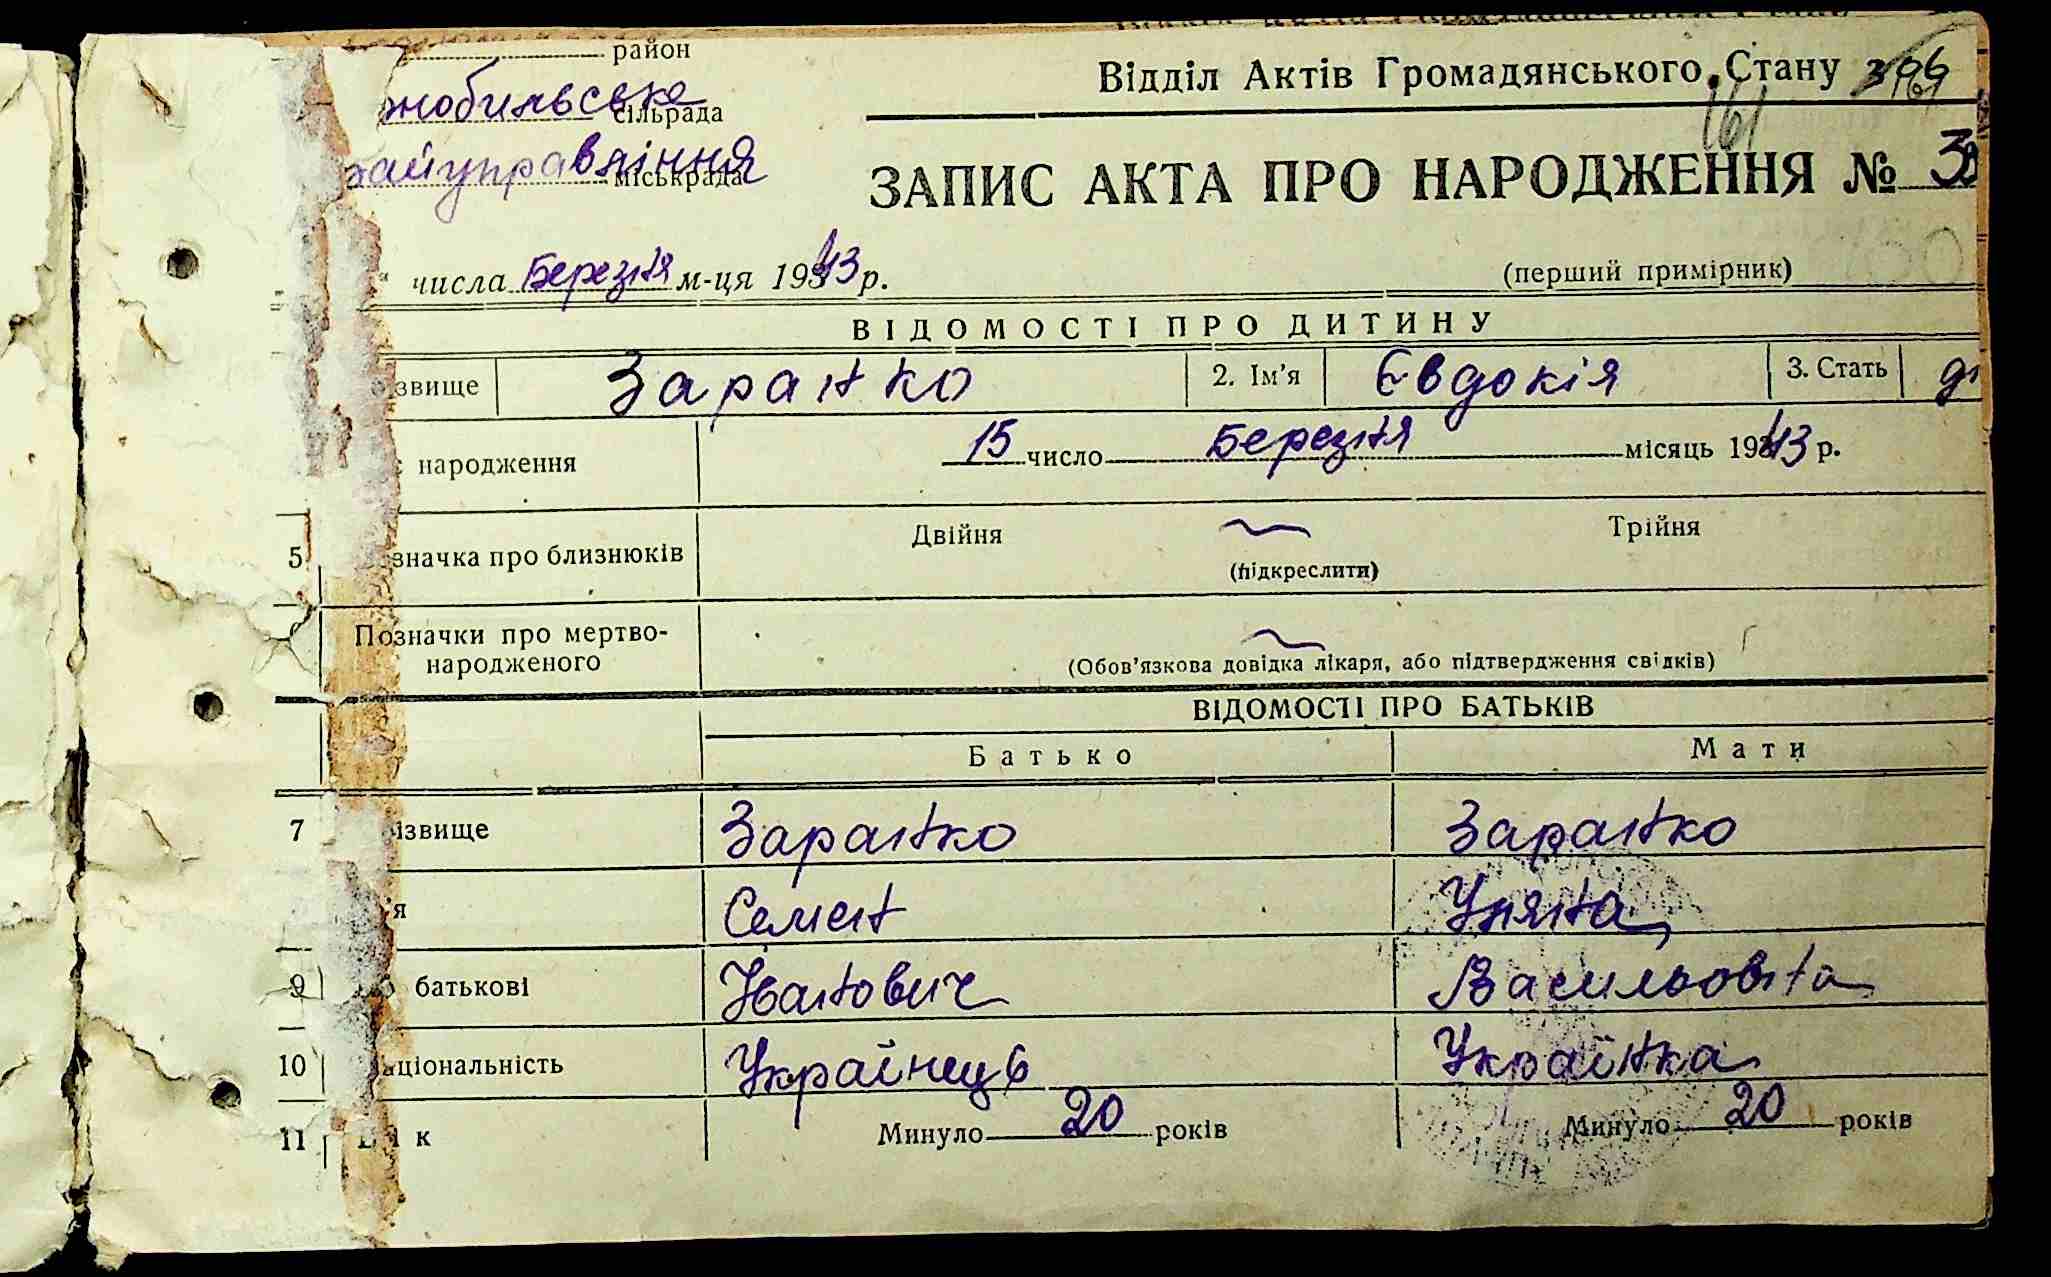 район
нобильське сільрада
райуправління міськрада
Відділ Актів Громадянського Стану
161
ЗАПИС АКТА ПРО НАРОДЖЕННЯ №
" числа Березня м-ця 1943 р.
(перший примірник)
ВІДОМОСТІ ПРО ДИТИНУ
звище Заранко 2. Ім'я Євдокія 3. Стать ді
народження 15 число Березня місяць 1943 р.
5 значка про близнюків Двійня Трійня
(підкреслити)
Позначки про мертво-
народженого
(Обов'язкова довідка лікаря, або підтвердження свідків)
ВІДОМОСТІ ПРО БАТЬКІВ
Батько Мати
7 ізвище Заранко Заранко
я Семен Уляна
9 батькові Іванович Васильовна
10 аціональність Українець Українка
11 Вік Минуло 20 років Минуло 20 років